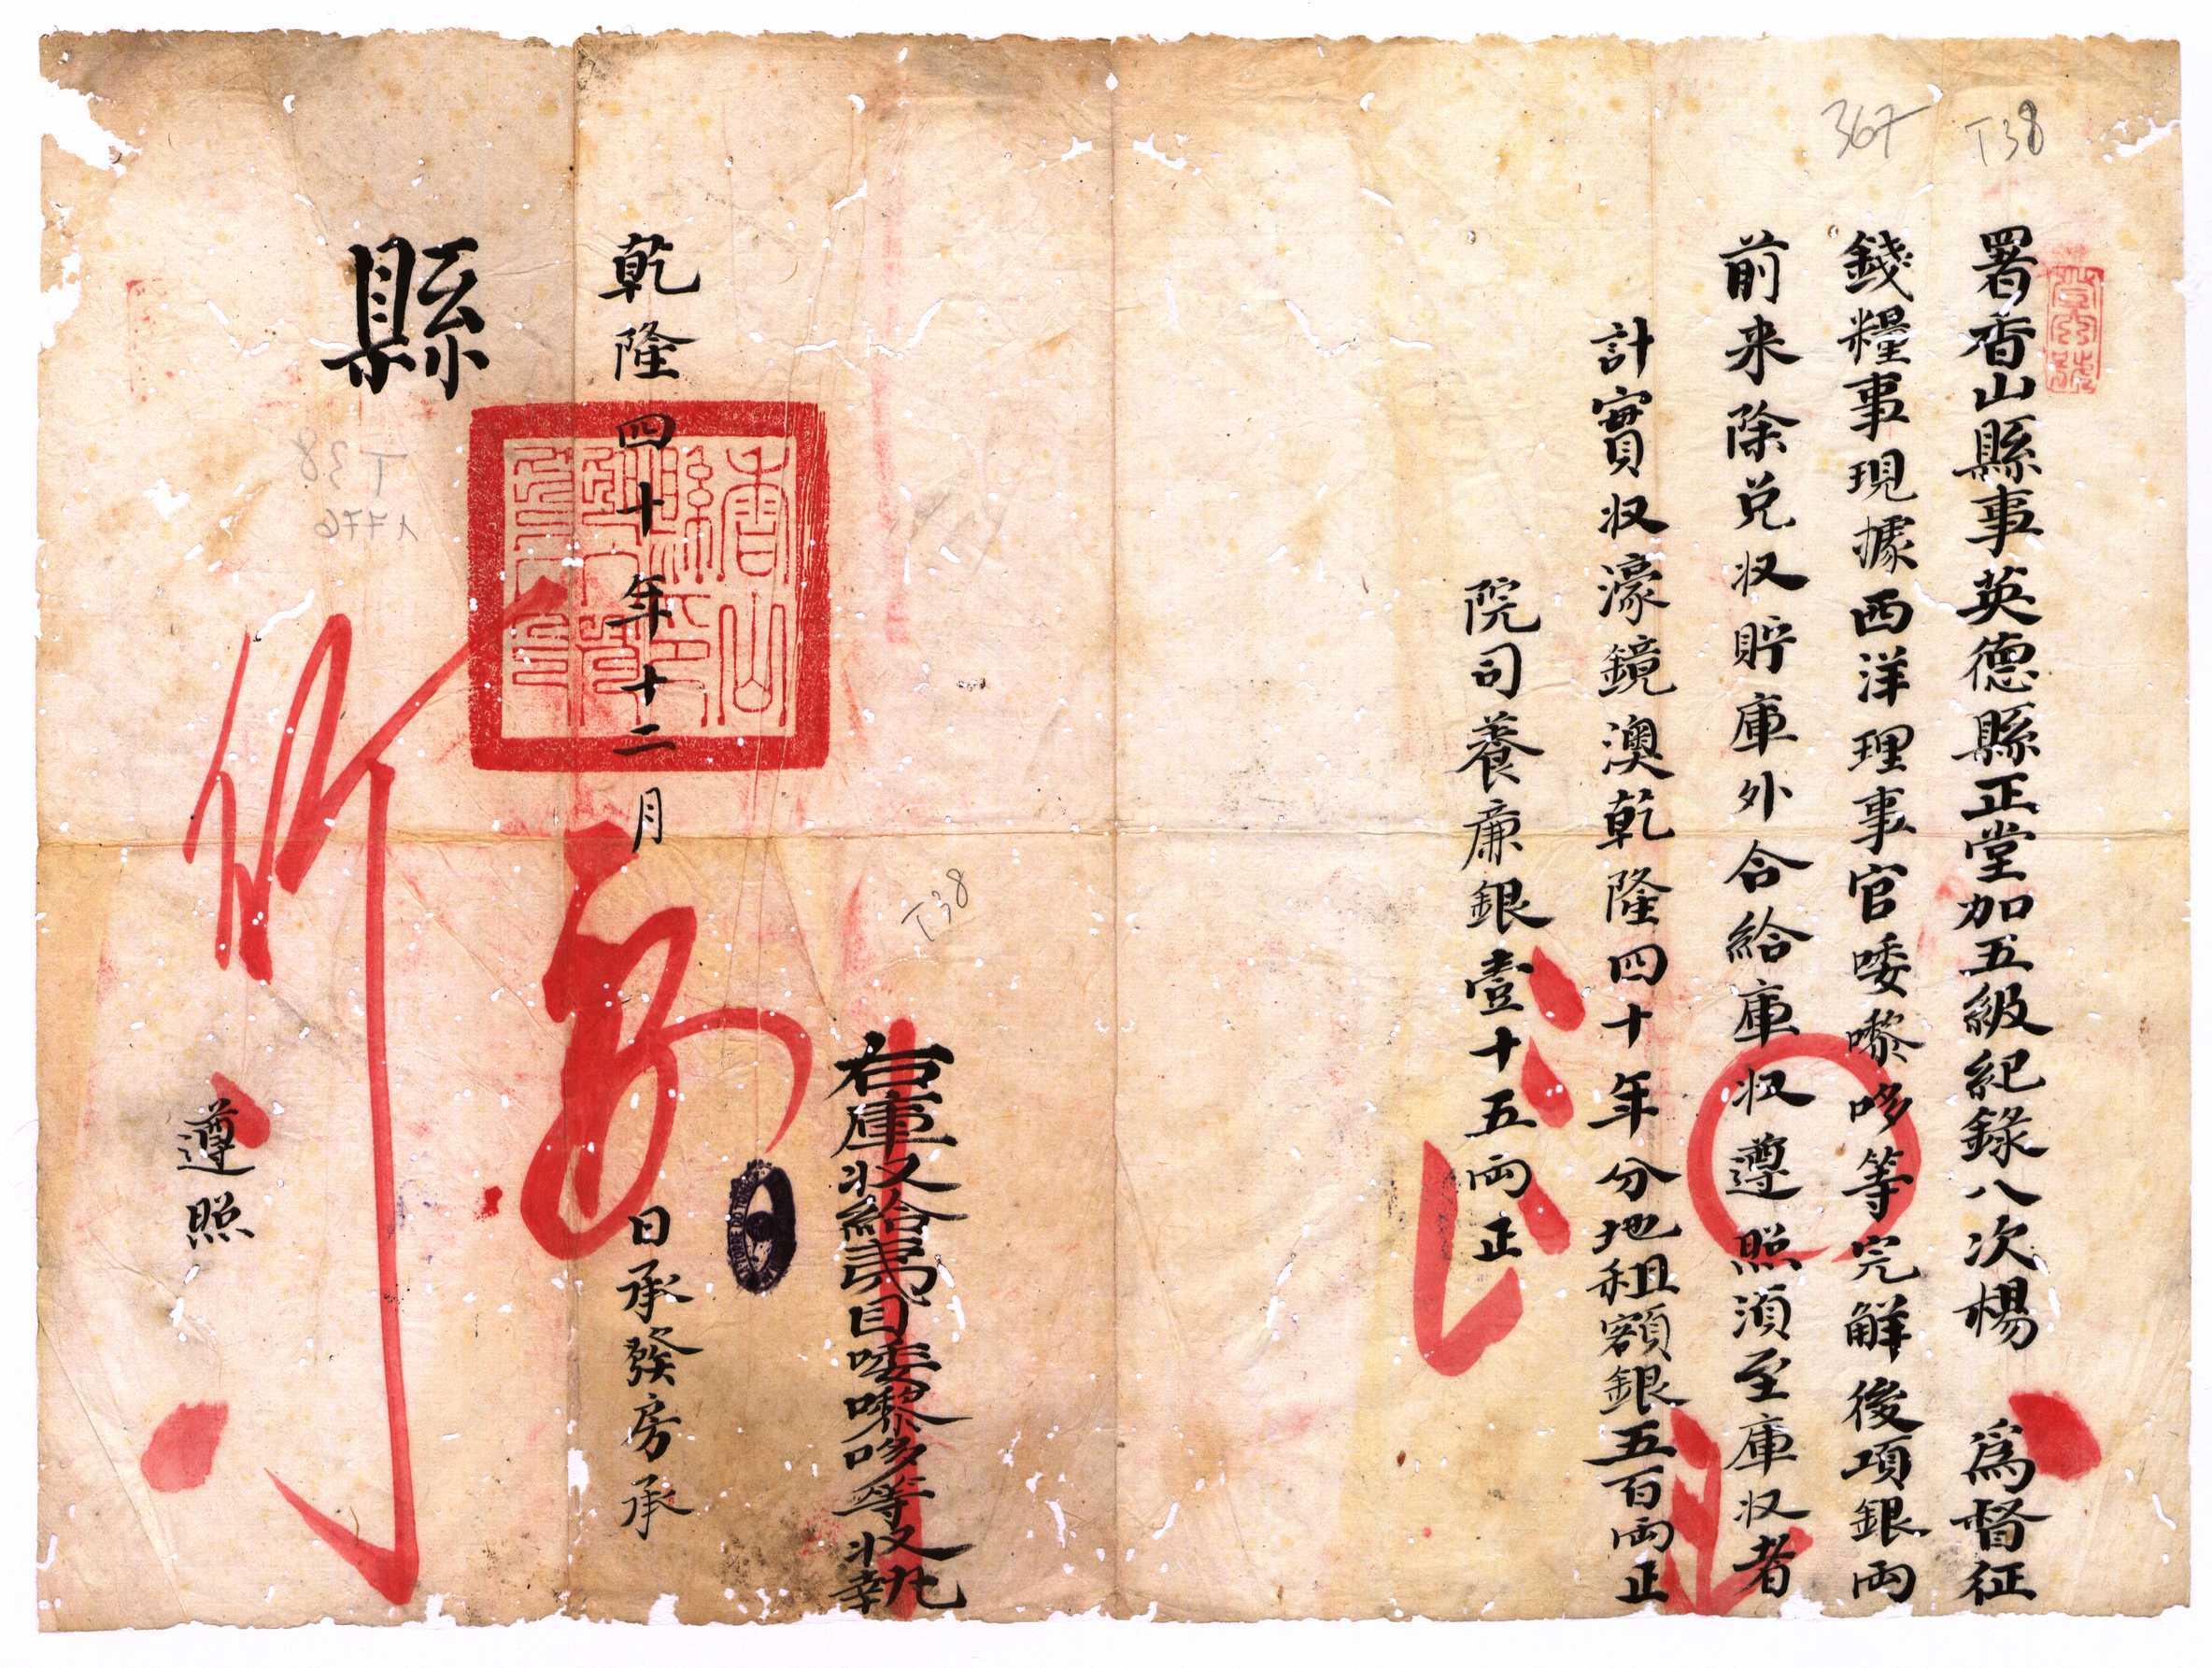 T38
367
署香山縣事英德縣正堂加五級紀錄八次楊　爲督征
錢糧事現據西洋理事官唩嚟哆等完觧後項銀両
前来除兌收貯庫外合給庫收遵照湏至庫收者
計實收濠鏡澳乾隆四十年分地租額銀五百両正
院司養廉銀壹十五両正
右庫收給夷目唩嚟哆等收執
T38
乾隆四十年十二月　日承發房承
香山縣印
縣
遵照
T38
1776